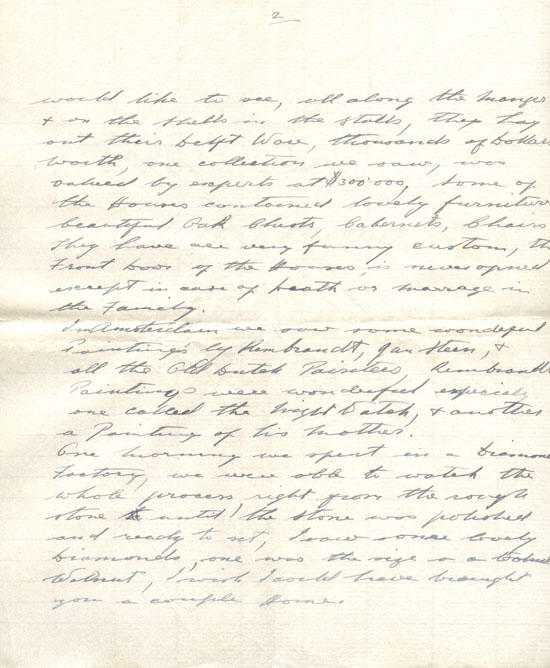 2
would like to see, all along the manger
& on the shells in the stalls, they lay
out their Delft Ware, thousands of Dollars
worth, one collection we saw, was
valued by experts at $300'000, some of
the Houses contained lovely furniture
beautiful Oak Chests, Cabenets, Chairs
They have one very funny custom, the
Front Door of the Houses is never opned
except in case of Death or marrage in
the Family.
In Amsterdam we saw some wonderful
Paintings by Rembrandt, Jan Steen, &
all the Old Dutch Painters, Rembrandt
Paintings were wonderful especialy
one called the Night Watch, & another
a Painting of his Mother.
One morning we spent in a Diamond
Factory, we were able to watch the
whole process, right from the rough
stone to until the stone was polished
and ready to set, I saw some lovely
Diamonds, one was the size o a
Walnut, I wish I could have brought
you a couple Home.